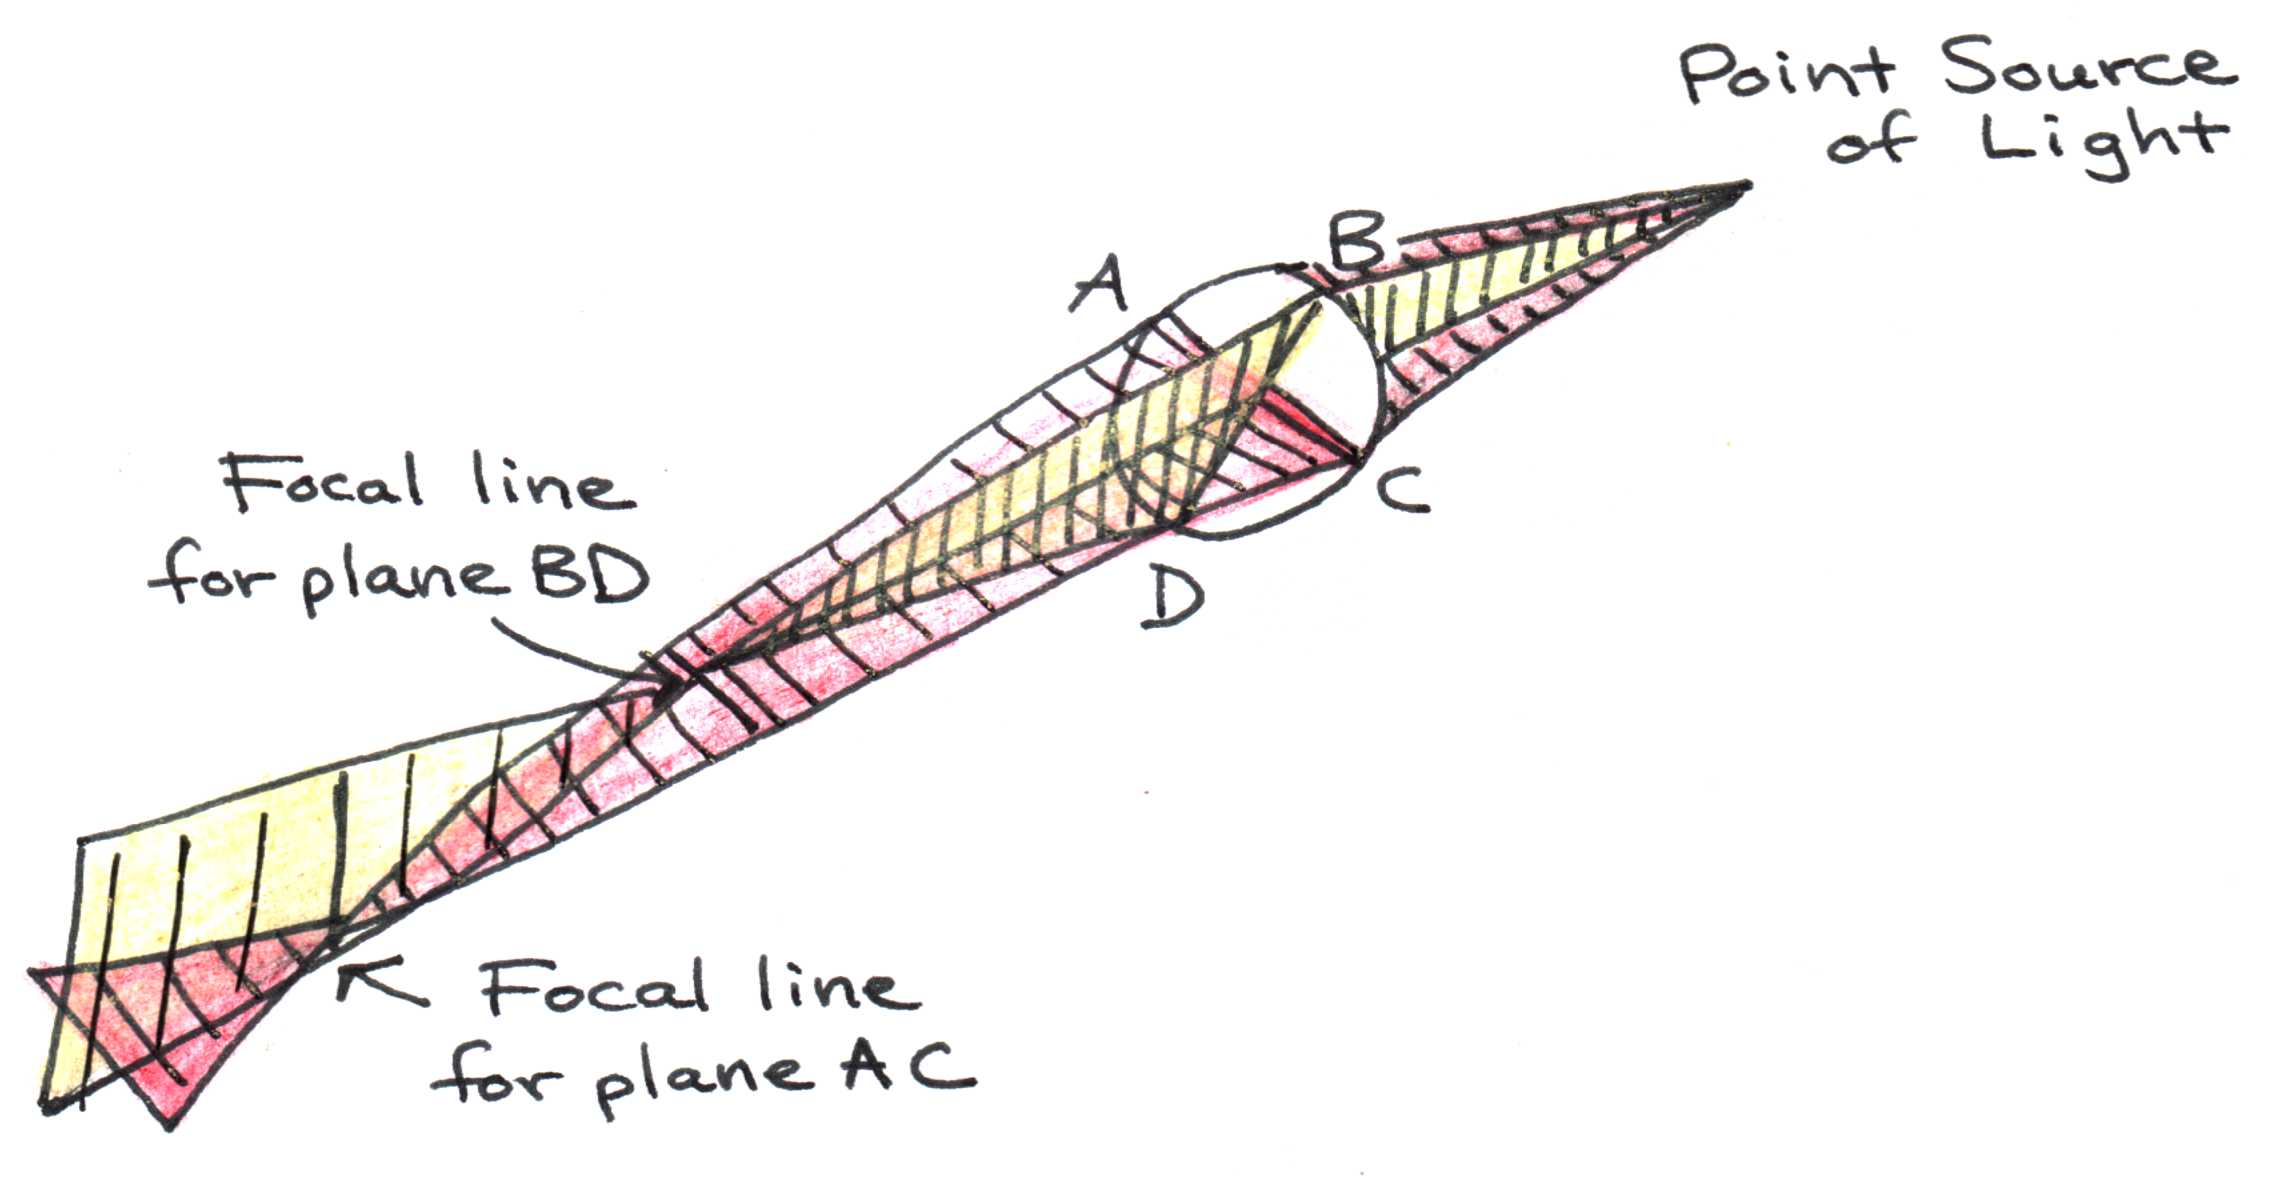 Point Source
of Light
B
A
C
D
Focal line
for plane BD
Focal line
for plane AC